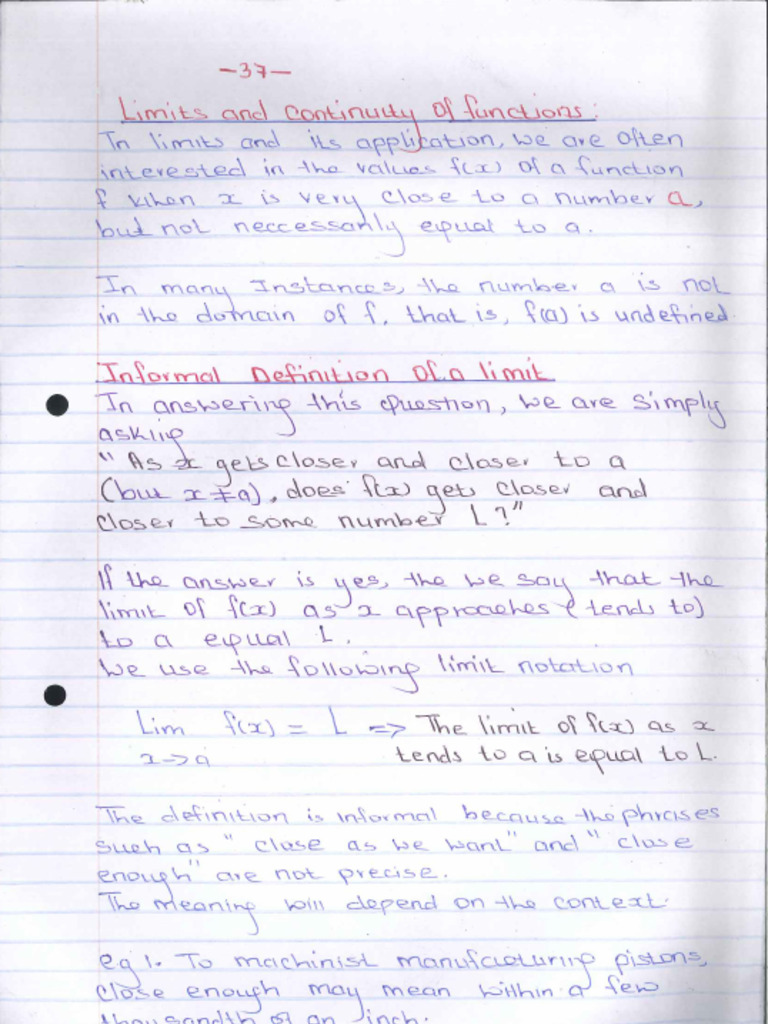 -37-
Limits and Continuity Of functions:
In limits and its application, we are often
interested in the values f(x) of a function
f when x is very close to a number a,
but not neccessarily equal to a.
In many Instances, the number a is not
in the domain of f, that is, f(a) is undefined.
Informal Definition Of a limit
In answering this question, we are simply
asking
" As x gets closer and closer to a
(but x ≠ a), does f(x) get closer and
closer to some number L?"
If the answer is yes, the we say that the
limit of f(x) as x approaches (tends to)
to a equal L.
We use the following limit notation
Lim f(x) = L => The limit of f(x) as x
x->a tends to a is equal to L.
The definition is informal because the phrases
such as " close as we want" and " close
enough" are not precise.
The meaning will depend on the context.
eg 1. To machinist manufacturing pistons,
close enough may mean within a few
thousandth of an inch.